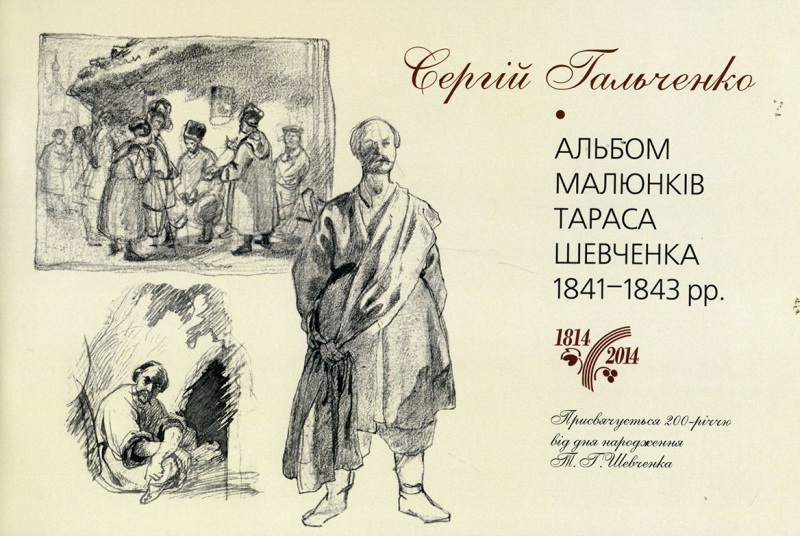 Сергій Гальченко
АЛЬБОМ
МАЛЮНКІВ
ТАРАСА
ШЕВЧЕНКА
1841–1843 рр.
1814
2014
Присвячується 200-річчю
від дня народження
Т. Г. Шевченка